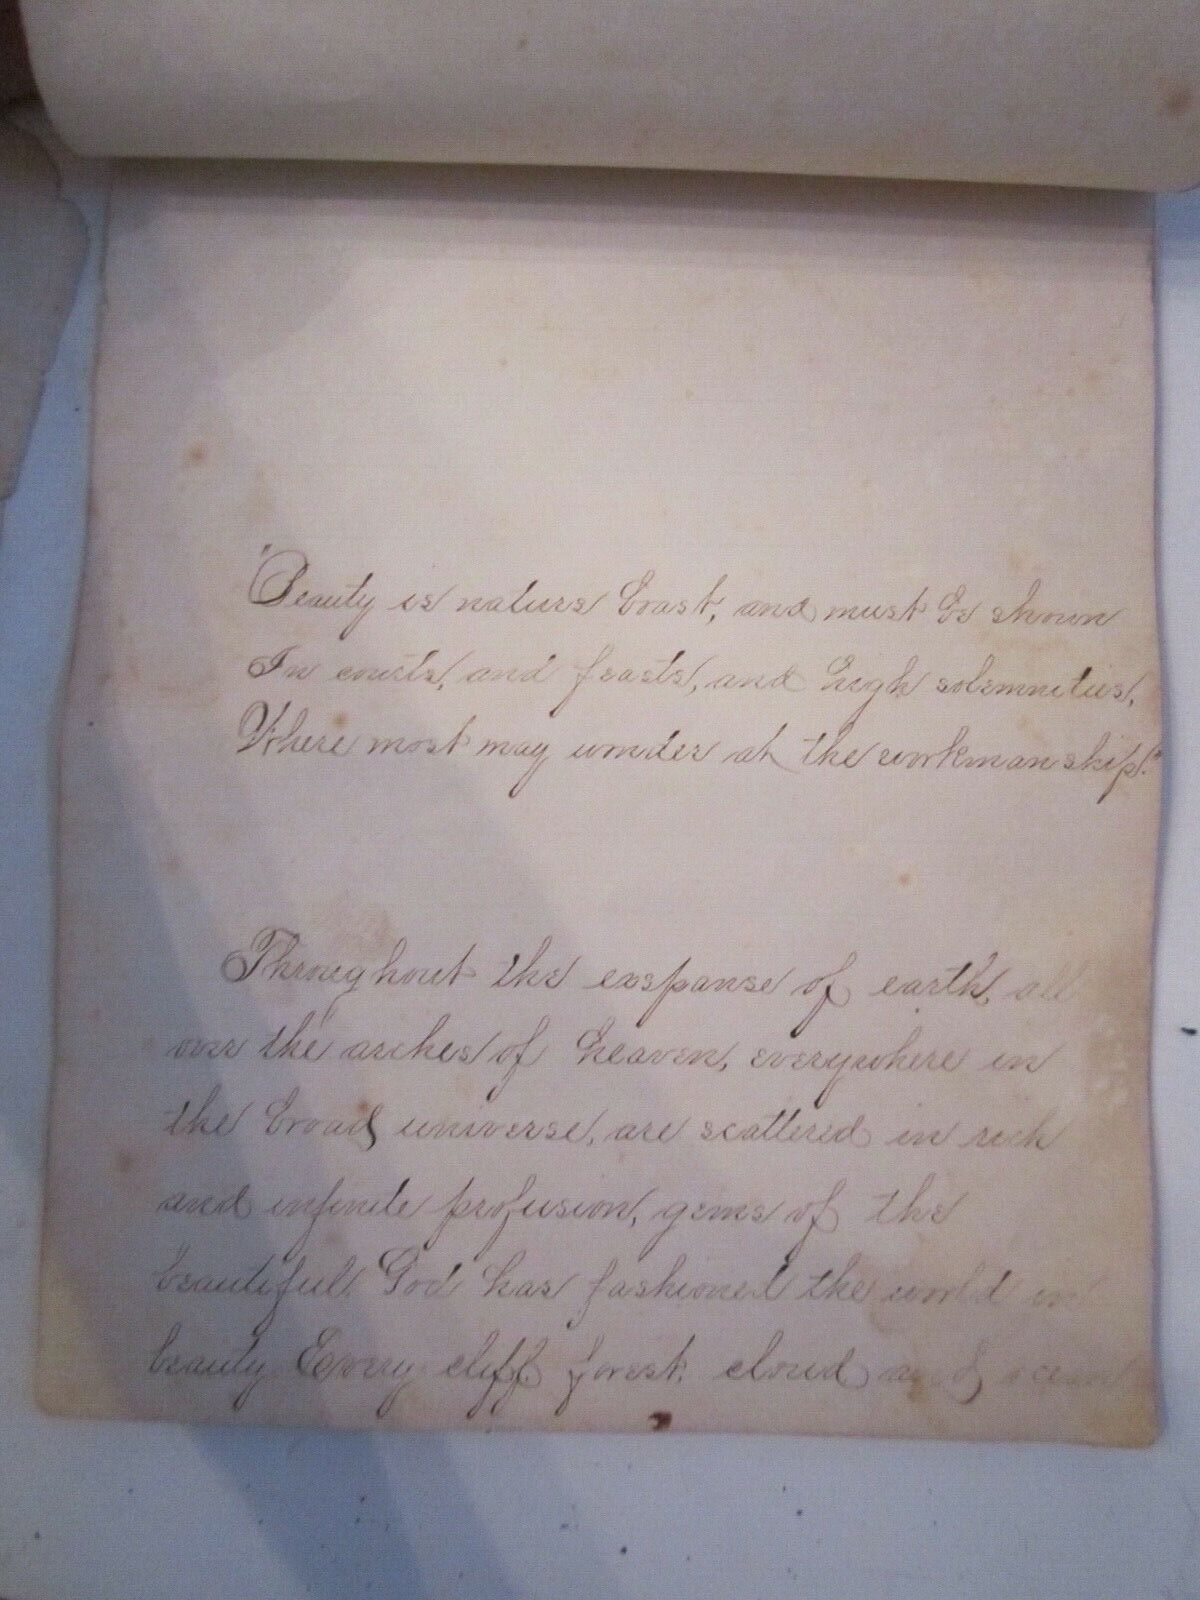 "Beauty is natures boast, and must be shown
In courts, and feasts, and high solemnities,
Where most may wonder at the workmanship."
Throughout the exspanse of earth, all
over the arches of heaven, everywhere in
the broad universe, are scattered in rich
and infinite profusion, gems of the
beautiful. God has fashioned the world in
beauty. Every cliff, forest, cloud and ocean